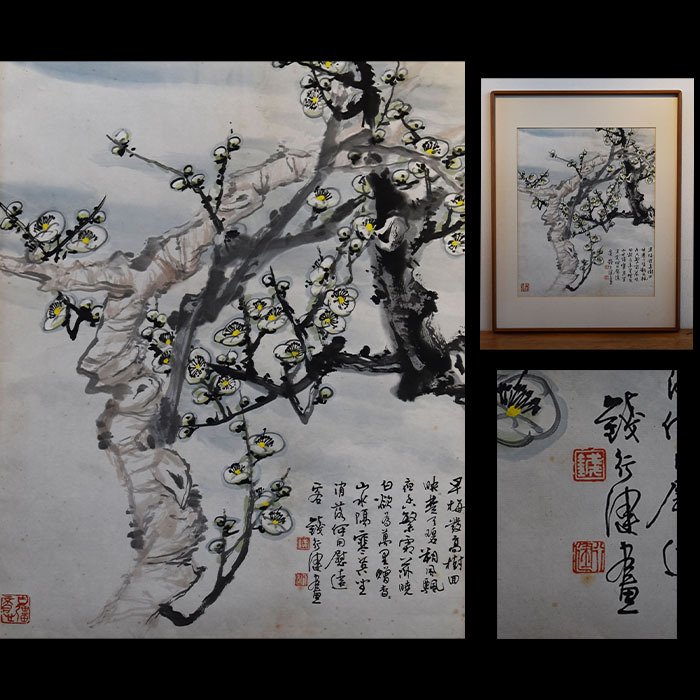 早梅發高樹迥
映楚天碧朔風飄
夜香繁霜滋曉
白欲為萬里贈杳
山水隔寒英坐
消落何用慰遠
客 錢行健畫
錢行健畫
錢